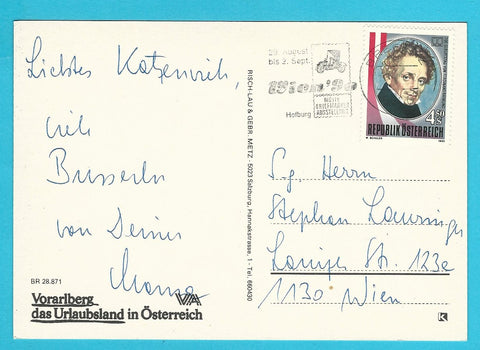 Liebstes Katzenvieh,
viele
Busserln
von Deiner
Mama
BR 28.871
Vorarlberg
das Urlaubsland in Österreich
VA
RISCH-LAU & GEBR. METZ · 5023 Salzburg, Hannakstrasse, 1 - Tel. 660430
29. August
bis 3. Sept.
Wien '90
Hofburg
4.50
REPUBLIK ÖSTERREICH
1990
S.g. Herrn
Stephan
Str. 123e
1130 Wien
K